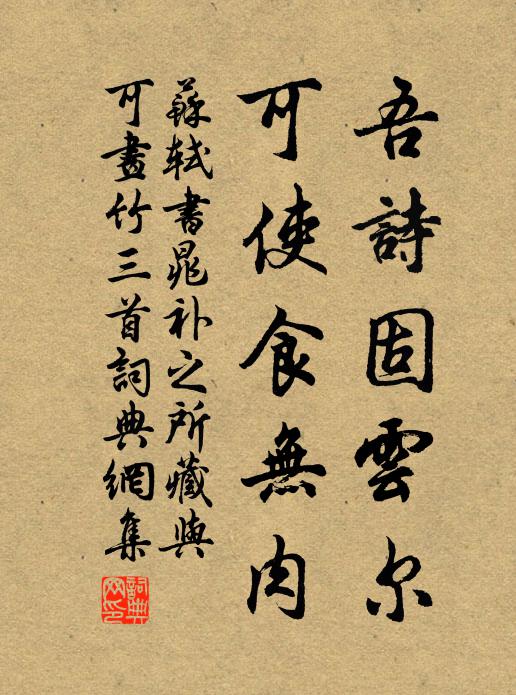 吾詩固雲尔
可使食無肉
蘇軾書晁补之所藏與
可畫竹三首詞典網集
詞典网印